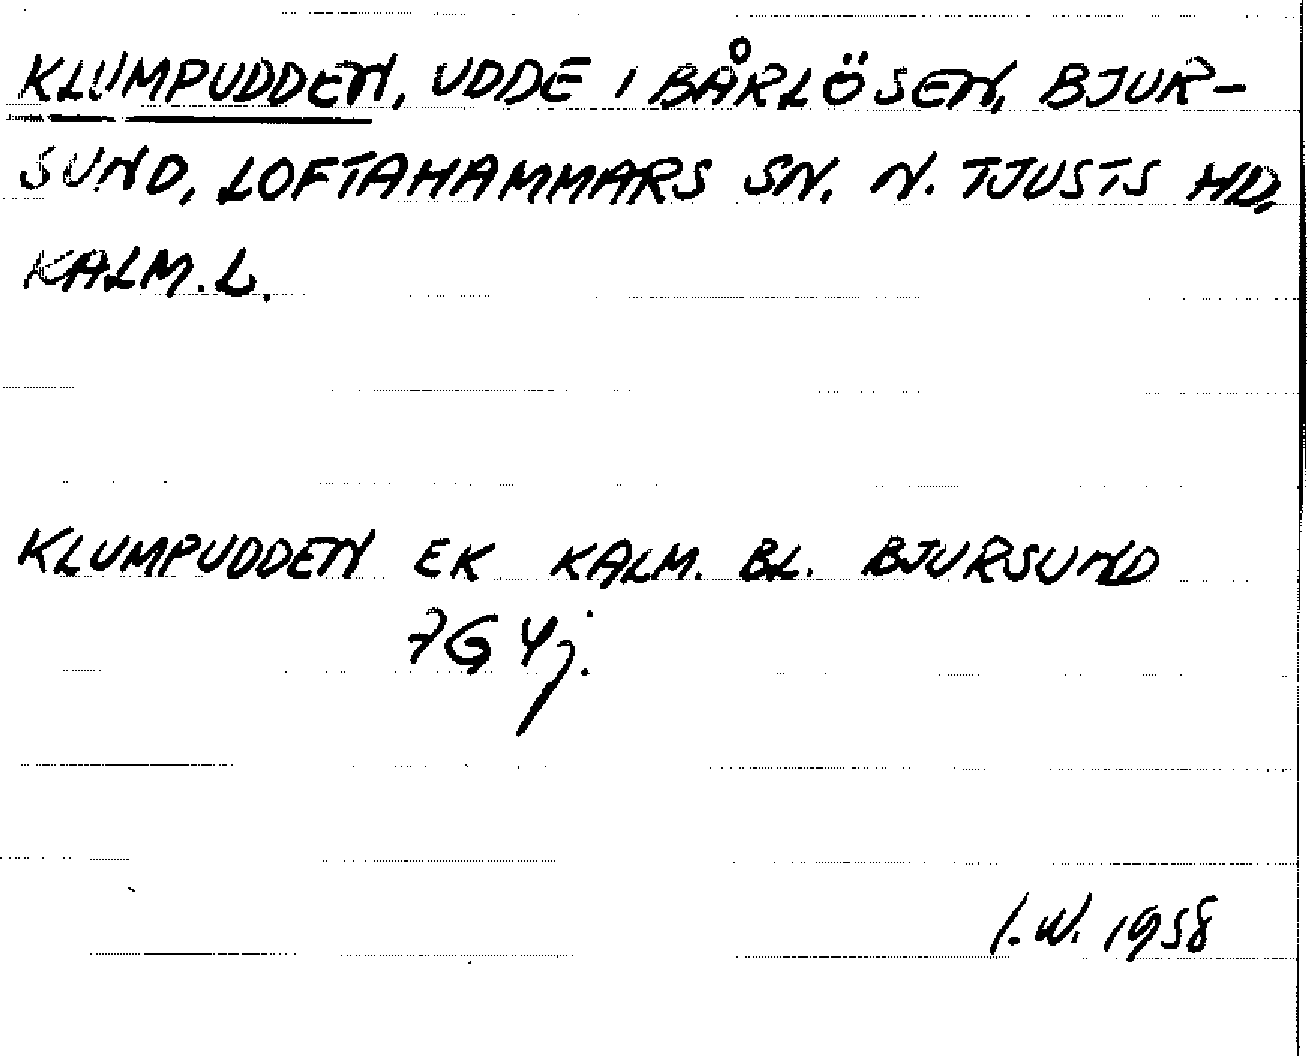 KLUMPUDDEN, UDDE I BÅRLÖSEN, BJUR-
SUND, LOFTAHAMMARS SN. N. TJUSTS HD,
KALM. L.
KLUMPUDDEN EK KALM. BL. BJURSUND
7G 4j.
I.W. 1958